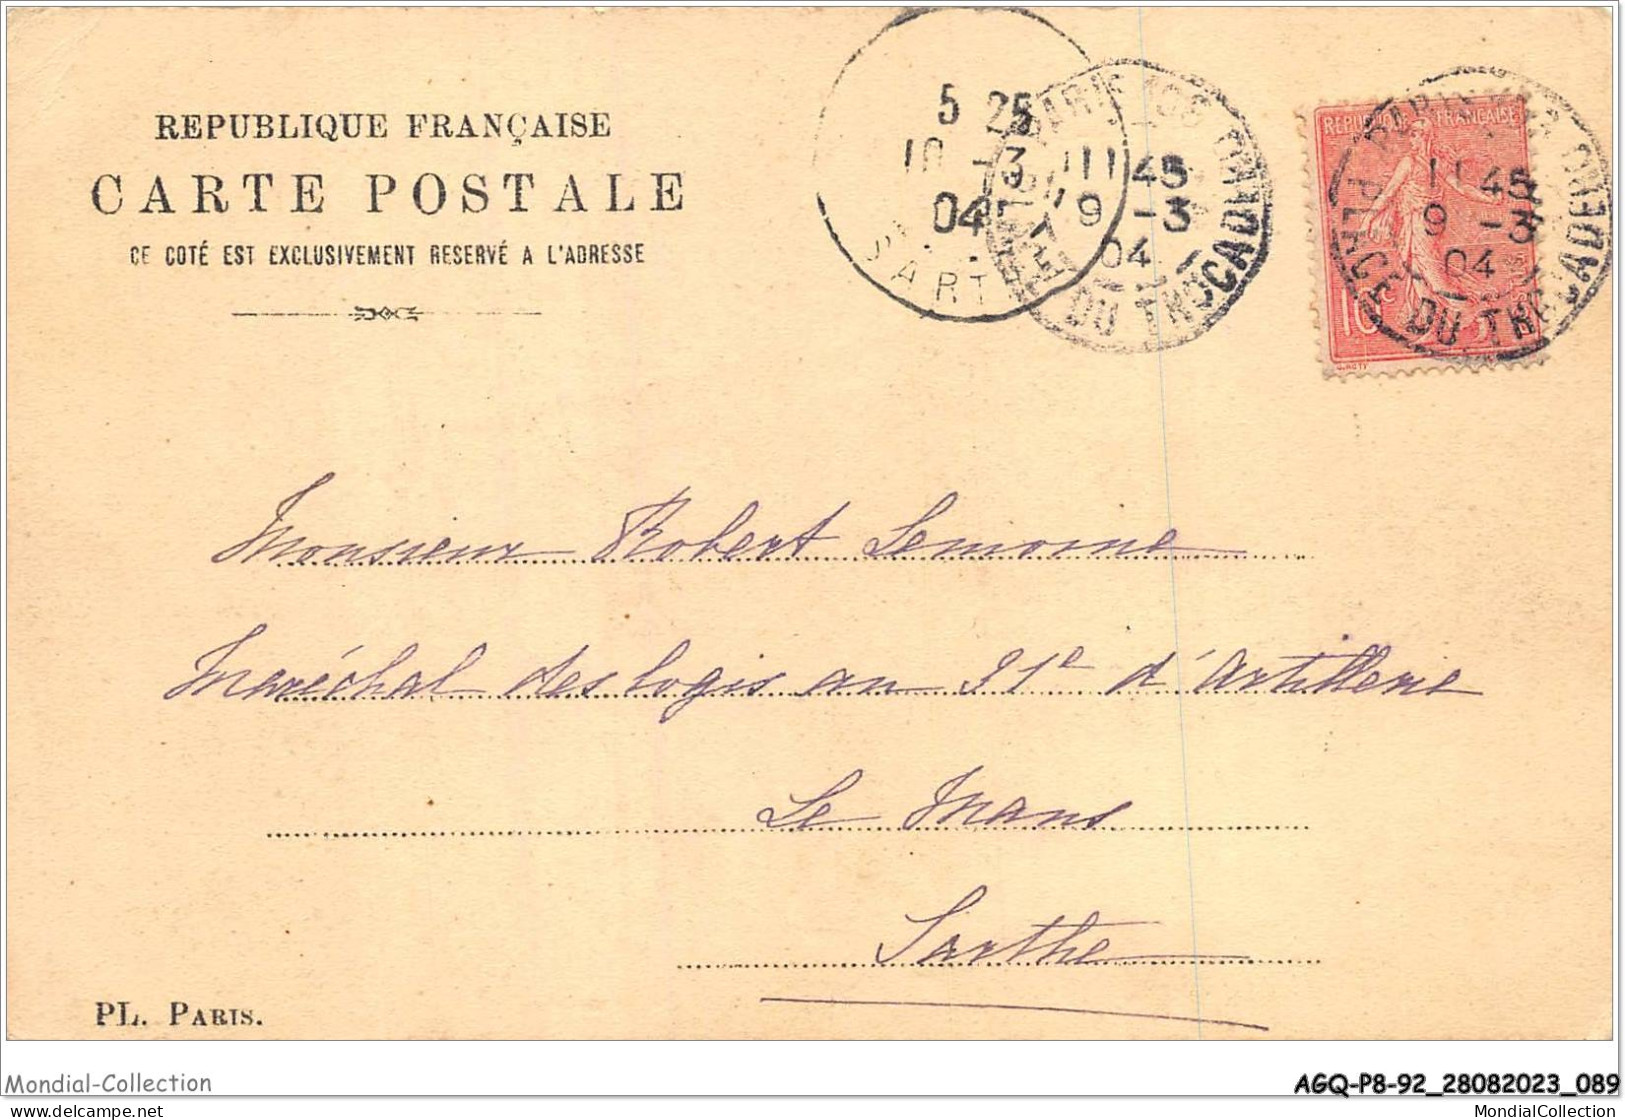 REPUBLIQUE FRANÇAISE
CARTE POSTALE
CE COTÉ EST EXCLUSIVEMENT RESERVÉ A L'ADRESSE
5 25
10 -3
04
SARTHE
PARIS 106
11 45
9 -3
04
PLACE DU TROCADERO
REPUBLIQUE FRANÇAISE
PARIS
11 45
9 -3
04
10c
PLACE DU TROCADERO
Monsieur Robert Lemoine
Maréchal des logis au 31e d'Artillerie
Le Mans
Sarthe
PL. PARIS.
Mondial-Collection
AGQ-P8-92_28082023_089
delcampe.net
MondialCollection